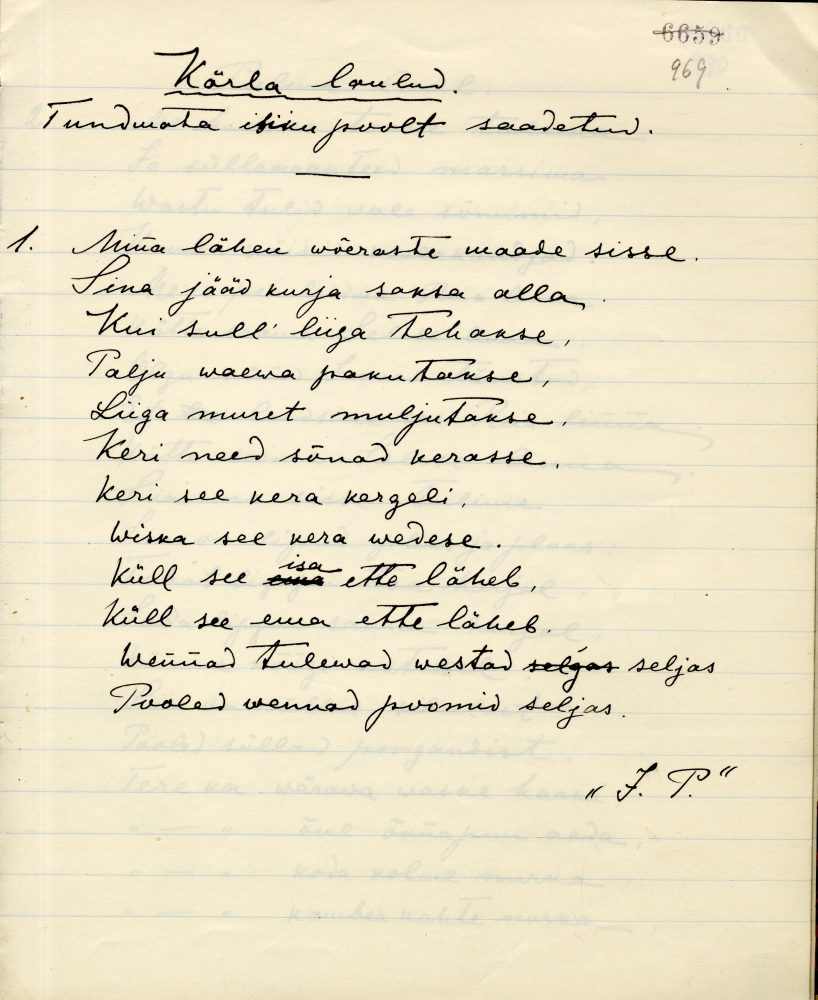 6659
969
Kärla laulud.
Tundmata isiku poolt saadetud.
1. Miña lähen wõeraste maade sisse.
Sina jääd kurja saksa alla.
Kui sull' liiga tehakse,
Palju waewa pakutakse,
Liiga muret muljutakse,
Keri need sõnad kerasse,
Keri see kera kergeli,
Wiska see kera wedese.
Küll see isa ette läheb,
Küll see ema ette läheb.
Weñnad tulewad westad selgas seljas
Pooled wennad poomid seljas.
„J. P."